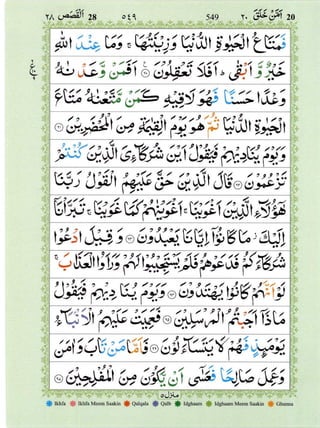 ٢٨ اَلْقَصَص 28 ٥٤٩ 549 اَمَّنْ خَلَقَ ٢٠ 20
فَمَتَاعُ الْحَيٰوةِ الدُّنْيَا وَزِيْنَتُهَا ۚ وَمَا عِنْدَ اللّٰهِ
خَيْرٌ وَّاَبْقٰى ؕ اَفَلَا تَعْقِلُوْنَ ۟ اَفَمَنْ وَّعَدْنٰهُ
وَعْدًا حَسَنًا فَهُوَ لَاقِيْهِ كَمَنْ مَّتَّعْنٰهُ مَتَاعَ
الْحَيٰوةِ الدُّنْيَا ثُمَّ هُوَ يَوْمَ الْقِيٰمَةِ مِنَ الْمُحْضَرِيْنَ ۟
وَيَوْمَ يُنَادِيْهِمْ فَيَقُوْلُ اَيْنَ شُرَكَآءِىَ الَّذِيْنَ كُنْتُمْ
تَزْعُمُوْنَ ۟ قَالَ الَّذِيْنَ حَقَّ عَلَيْهِمُ الْقَوْلُ رَبَّنَا
هٰٓؤُلَآءِ الَّذِيْنَ اَغْوَيْنَا ۚ اَغْوَيْنٰهُمْ كَمَا غَوَيْنَا ۚ تَبَرَّاْنَاۤ
اِلَيْكَ ؗ مَا كَانُوْۤا اِيَّانَا يَعْبُدُوْنَ ۟ وَقِيْلَ ادْعُوْا
شُرَكَآءَكُمْ فَدَعَوْهُمْ فَلَمْ يَسْتَجِيْبُوْا لَهُمْ وَرَاَوُا الْعَذَابَ ۚ
لَوْ اَنَّهُمْ كَانُوْا يَهْتَدُوْنَ ۟ وَيَوْمَ يُنَادِيْهِمْ فَيَقُوْلُ
مَاذَاۤ اَجَبْتُمُ الْمُرْسَلِيْنَ ۟ فَعَمِيَتْ عَلَيْهِمُ الْاَنْۢبَآءُ
يَوْمَىِٕذٍ فَهُمْ لَا يَتَسَآءَلُوْنَ ۟ فَاَمَّا مَنْ تَابَ وَاٰمَنَ
وَعَمِلَ صَالِحًا فَعَسٰۤى اَنْ يَّكُوْنَ مِنَ الْمُفْلِحِيْنَ ۟
منزل ٥
Ikhfa Ikhfa Meem Saakin Qalqala Qalb Idghaam Idghaam Meem Saakin Ghunna